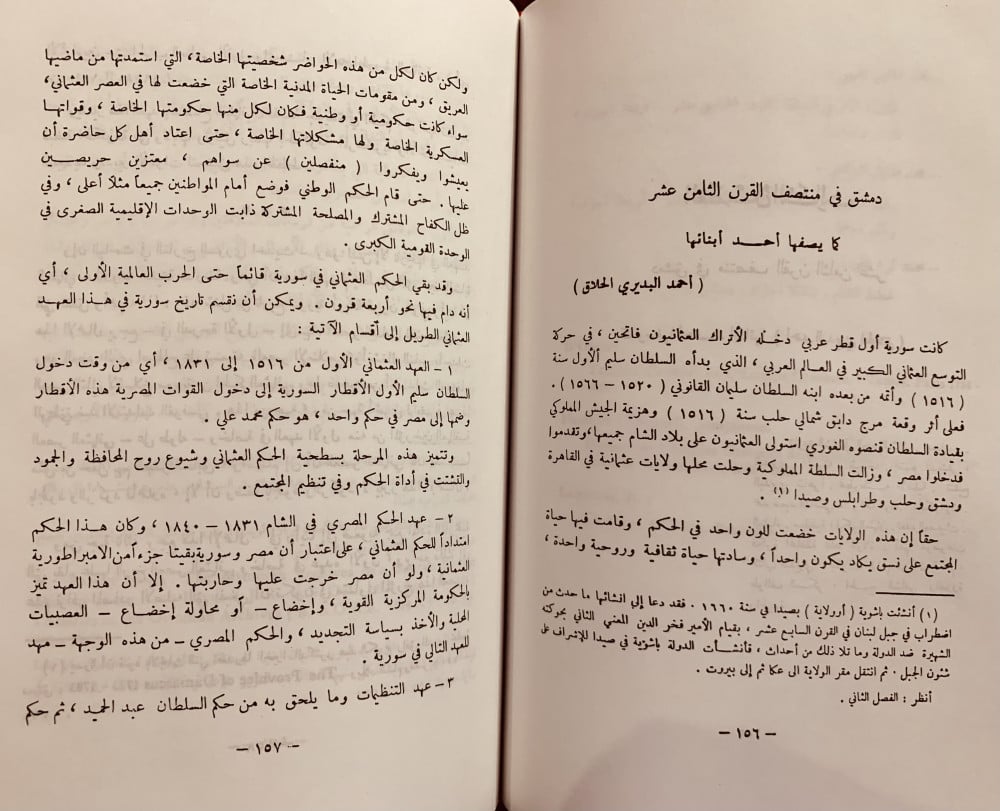 دمشق في منتصف القرن الثامن عشر
كما يصفها أحـــد أبنائها
( أحمد البديري الحلاق )
كانت سورية أول قطر عربي دخله الأتراك العثمانيون فاتحين ، في حركة
التوسع العثماني الكبير في العالم العربي ، الذي بدأه السلطان سليم الأول سنة
( ١٥١٦ ) وأتمه من بعده ابنه السلطان سليمان القانوني ( ١٥٢٠ – ١٥٦٦ ) .
فعلى أثر وقعة مرج دابق شمالي حلب سنة ( ١٥١٦ ) وهزيمة الجيش المملوكي
بقيادة السلطان قنصوه الغوري استولى العثمانيون على بلاد الشام جميعها، وتقدموا
فدخلوا مصر ، وزالت السلطة المملوكية وحلت محلها ولايات عثمانية في القاهرة
ودمشق وحلب وطرابلس وصيدا (١) .
حقاً إن هذه الولايات خضعت للون واحد في الحكم ، وقامت فيها حياة
المجتمع على نسق يكاد يكون واحداً ، وسادتها حياة ثقافية وروحية واحدة ،
(١) أنشئت باشوية ( أو ولاية ) بصيدا في سنة ١٦٦٠ . فقد دعا إلى انشائها ما حدث من
اضطراب في جبل لبنان في القرن السابع عشر ، بقيام الأمير فخر الدين المعني الثاني بحركته
الشهيرة ضد الدولة وما تلا ذلك من أحداث ، فأنشأت الدولة باشوية في صيدا للإشراف على
شئون الجبل . ثم انتقل مقر الولاية الى عكا ثم إلى بيروت .
أنظر : الفصل الثاني .
– ١٥٦ –
ولكن كان لكل من هذه الحواضر شخصيتها الخاصة، التي استمدتها من ماضيها
العريق ، ومن مقومات الحياة المدنية الخاصة التي خضعت لها في العصر العثماني،
سواء كانت حكومية أو وطنية فكان لكل منها حكومتها الخاصة ، وقواتهـا
العسكرية الخاصة ولها مشكلاتها الخاصة ، حتى اعتاد أهل كل حاضرة أن
يعيشوا ويفكروا ( منفصلين ) عن سواهم ، معتزين حريصـــين
عليها . حتى قام الحكم الوطني فوضع أمام المواطنين جميعاً مثلاً أعلى ، وفي
ظل الكفاح المشترك والمصلحة المشتركة ذابت الوحدات الإقليمية الصغرى في
الوحدة القومية الكبرى .
وقد بقي الحكم العثماني في سورية قائماً حتى الحرب العالمية الأولى ، أي
أنه دام فيها نحو أربعة قرون . ويمكن أن نقسم تاريخ سورية في هـذا العهـد
العثماني الطويل إلى أقسام الآتية :
١ – العهد العثماني الأول من ١٥١٦ إلى ١٨٣١ ، أي من وقت دخول
السلطان سليم الأول الأقطار السورية إلى دخول القوات المصرية هذه الأقطار
وضمها إلى مصر في حكم واحد ، هو حكم محمد علي .
وتتميز هذه المرحلة بسطحية الحكم العثماني وشيوع روح المحافظة والجمود
والتشتت في أداة الحكم وفي تنظيم المجتمع .
٢ – عهد الحكم المصري في الشام ١٨٣١ – ١٨٤٠ ، وكان هـذا الحكم
امتداداً للحكم العثماني ، على اعتبار أن مصر وسورية بقيتا جزءاً من الامبراطورية
العثمانية ، ولو أن مصر خرجت عليها وحاربتها . إلا أن هذا العهد تميز
بالحكومة المركزية القوية ، وإخضاع – أو محاولة إخضاع – العصبيات
المحلية والأخذ بسياسة التجديد ، والحكم المصري – من هذه الوجهة – مهد
للعهد التالي في سورية .
٣ – عهد التنظيمات وما يلحق به من حكم السلطان عبد الحميد ، ثم حكم
– ١٥٧ –